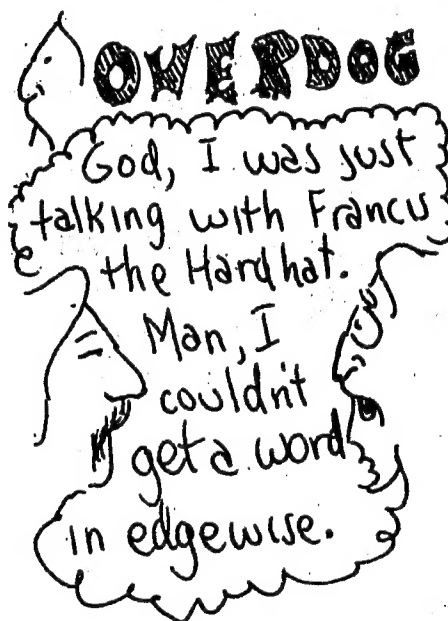 OVERDOG
God, I was just
talking with Francis
the Hardhat.
Man, I
couldn't
get a word
in edgewise.